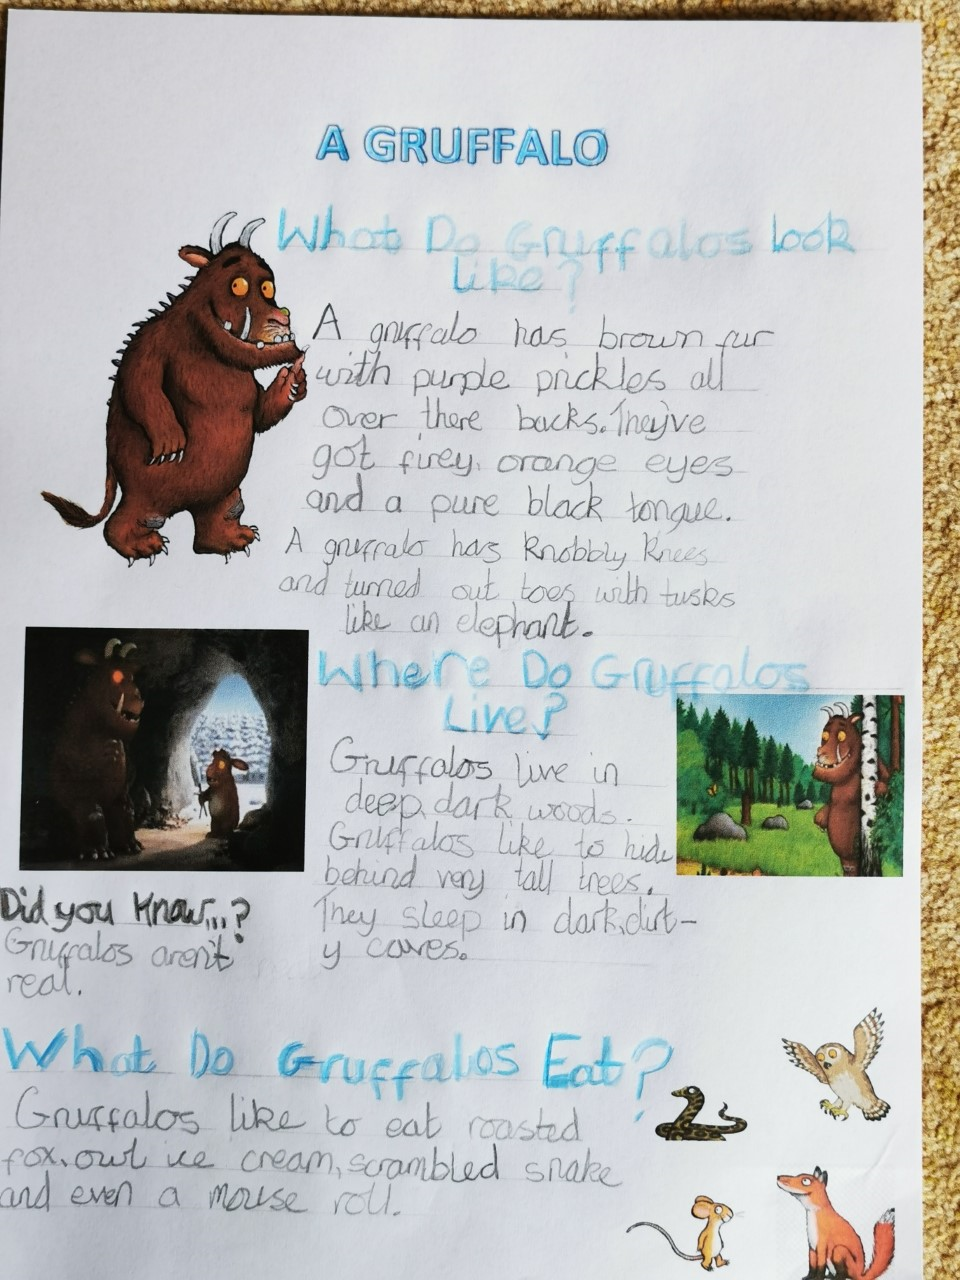 A GRUFFALO
What Do Gruffalos look
like?
A gruffalo has brown fur
with purple prickles all
over there backs. They've
got firey, orange eyes
and a pure black tongue.
A gruffalo has knobbly knees
and turned out toes with tusks
like an elephant.
Where Do Gruffalos
Live?
Gruffalos live in
deep, dark woods.
Gruffalos like to hide
behind very tall trees.
They sleep in dark, dirt-
y caves.
Did you know...?
Gruffalos aren't
real.
What Do Gruffalos Eat?
Gruffalos like to eat roasted
fox, owl ice cream, scrambled snake
and even a mouse roll.